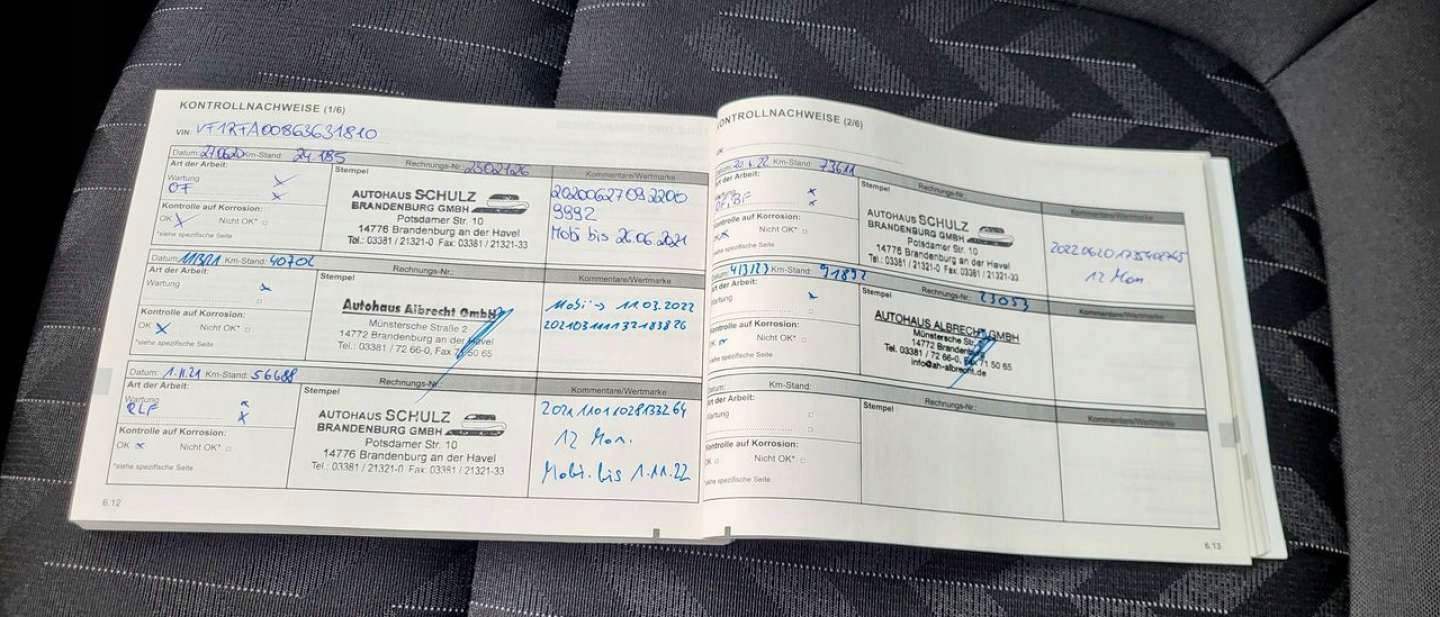 KONTROLLNACHWEISE (1/6)
VIN: VF1RFA00863631810
Datum: 270620 Km-Stand: 24 185 Rechnungs-Nr.: 2502126
Art der Arbeit: Stempel Kommentare/Wertmarke
Wartung
OF
Kontrolle auf Korrosion:
OK Nicht OK*
*siehe spezifische Seite
AUTOHAUS SCHULZ
BRANDENBURG GMBH
Potsdamer Str. 10
14776 Brandenburg an der Havel
Tel.: 03381 / 21321-0 Fax: 03381 / 21321-33
2020062709 2200
9992
Mobi bis 26.06.2021
Datum: 11/3/21 Km-Stand: 40702 Rechnungs-Nr.:
Art der Arbeit: Stempel Kommentare/Wertmarke
Wartung
Kontrolle auf Korrosion:
OK Nicht OK*
*siehe spezifische Seite
Autohaus Albrecht GmbH
Münstersche Straße 2
14772 Brandenburg an der Havel
Tel.: 03381 / 72 66-0, Fax 71 50 65
Mobi -> 11.03.2022
Datum: 1.11.21 Km-Stand: 56688 Rechnungs-Nr.:
Art der Arbeit: Stempel Kommentare/Wertmarke
Wartung
Kontrolle auf Korrosion:
OK Nicht OK*
*siehe spezifische Seite
AUTOHAUS SCHULZ
BRANDENBURG GMBH
Potsdamer Str. 10
14776 Brandenburg an der Havel
Tel.: 03381 / 21321-0 Fax: 03381 / 21321-33
20211101028133264
12 Mon.
Mobi. bis 1.11.22
6.12
KONTROLLNACHWEISE (2/6)
Datum: Km-Stand: 73611 Rechnungs-Nr.:
Art der Arbeit: Stempel Kommentare/Wertmarke
Wartung
Kontrolle auf Korrosion:
OK Nicht OK*
*siehe spezifische Seite
AUTOHAUS SCHULZ
BRANDENBURG GMBH
Potsdamer Str. 10
14776 Brandenburg an der Havel
Tel.: 03381 / 21321-0 Fax: 03381 / 21321-33
12 Mon
Datum: 4/3/23 Km-Stand: 91892 Rechnungs-Nr.: 23053
Art der Arbeit: Stempel Kommentare/Wertmarke
Wartung
Kontrolle auf Korrosion:
OK Nicht OK*
*siehe spezifische Seite
AUTOHAUS ALBRECHT GMBH
Münstersche Str.
14772 Brandenburg
Tel. 03381 / 72 66-0, Fax 71 50 65
info@ah-albrecht.de
Datum: Km-Stand: Rechnungs-Nr.:
Art der Arbeit: Stempel Kommentare/Wertmarke
Wartung
Kontrolle auf Korrosion:
OK Nicht OK*
*siehe spezifische Seite
6.13